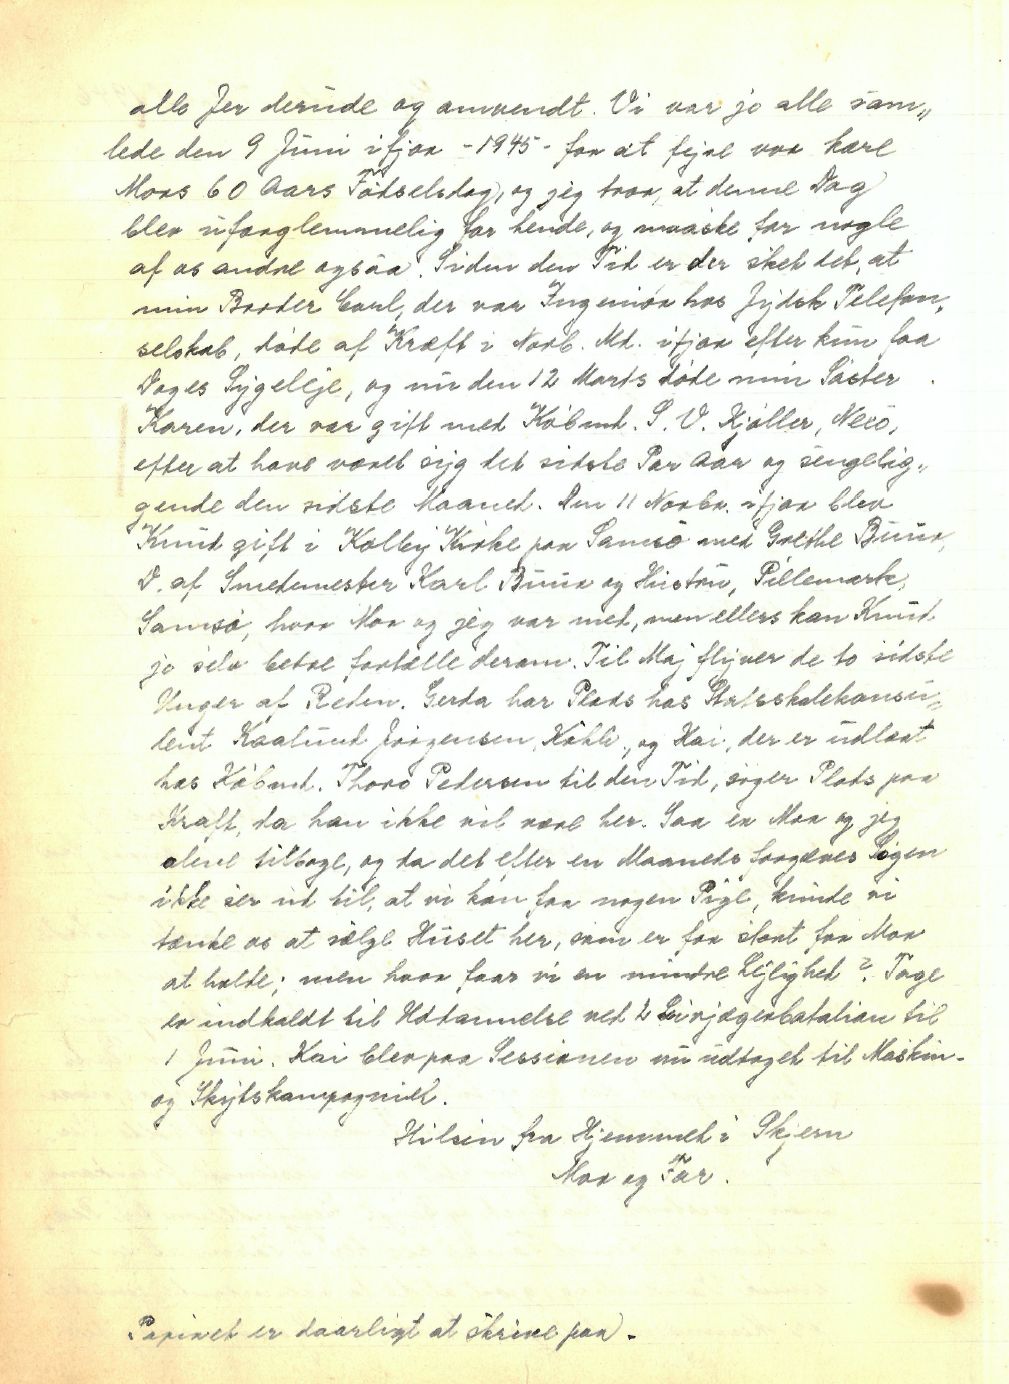 alle Jer derude og omvendt. Vi var jo alle sam„
lede den 9 Juni ifjor - 1945 - for at fejre vor kære
Mors 60 Aars Födselsdag, og jeg tror, at denne Dag
blev uforglemmelig for hende, og maaske for nogle
af os andre ogsaa. Siden den Tid er der sket det, at
min Broder Carl, der var Ingeniör hos Jydsk Telefon„
selskab, döde af Kræft i Novb. Md. ifjor efter kun faa
Dages Sygeleje, og nu den 12 Marts döde min Söster
Karen, der var gift med Köbmd. S. V. Kjöller,
efter at have været syg det sidste Par Aar og sengelig„
gende den sidste Maaned. Den 11 Novbr. ifjor blev
Knud gift i Kolby Kirke paa Samsö med Grethe Buur,
D. af Smedemester Karl Buur og Hustru, Pillemark,
Samsö, hvor Mor og jeg var med, men ellers kan Knud
jo selv bedre fortælle derom. Til Maj flyver de to sidste
Unger af Reden. Gerda har Plads hos Statsskolekonsu„
lent Kaalund Jörgensen, og Kai, der er udlært
hos Köbmd. Thorö Pedersen til den Tid, söger Plads paa
Kraft, da han ikke vil være her. Saa er Mor og jeg
alene tilbage, og da det efter en Maaneds forgæves Sögen
ikke ser ud til, at vi kan faa nogen Pige, kunde vi
tænke os at sælge Huset her, som er for stort for Mor
at holde; men hvor faar vi en mindre Lejlighed? Tage
er indkaldt til Uddannelse ved 2 Livjægerbatalion til
1 Juni. Kai blev paa Sessionen nu udtaget til Maskin-
og Skytskompagniet.
Hilsen fra Hjemmet i Skjern
Mor og Far.
Papiret er daarligt at skrive paa.